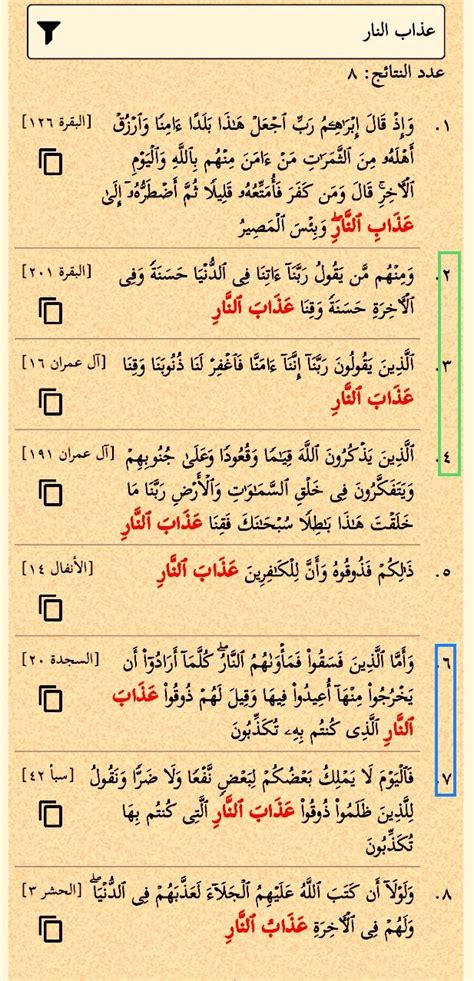 عذاب النار
عدد النتائج: ٨
١. وَإِذْ قَالَ إِبْرَٰهِـۧمُ رَبِّ ٱجْعَلْ هَـٰذَا بَلَدًا ءَامِنًا وَٱرْزُقْ [البقرة ١٢٦]
أَهْلَهُۥ مِنَ ٱلثَّمَرَٰتِ مَنْ ءَامَنَ مِنْهُم بِٱللَّهِ وَٱلْيَوْمِ
ٱلْـَٔاخِرِۖ قَالَ وَمَن كَفَرَ فَأُمَتِّعُهُۥ قَلِيلًا ثُمَّ أَضْطَرُّهُۥٓ إِلَىٰ
عَذَابِ ٱلنَّارِۖ وَبِئْسَ ٱلْمَصِيرُ
٢. وَمِنْهُم مَّن يَقُولُ رَبَّنَآ ءَاتِنَا فِى ٱلدُّنْيَا حَسَنَةً وَفِى [البقرة ٢٠١]
ٱلْـَٔاخِرَةِ حَسَنَةً وَقِنَا عَذَابَ ٱلنَّارِ
٣. ٱلَّذِينَ يَقُولُونَ رَبَّنَآ إِنَّنَآ ءَامَنَّا فَٱغْفِرْ لَنَا ذُنُوبَنَا وَقِنَا [آل عمران ١٦]
عَذَابَ ٱلنَّارِ
٤. ٱلَّذِينَ يَذْكُرُونَ ٱللَّهَ قِيَـٰمًا وَقُعُودًا وَعَلَىٰ جُنُوبِهِمْ [آل عمران ١٩١]
وَيَتَفَكَّرُونَ فِى خَلْقِ ٱلسَّمَـٰوَٰتِ وَٱلْأَرْضِ رَبَّنَا مَا
خَلَقْتَ هَـٰذَا بَـٰطِلًا سُبْحَـٰنَكَ فَقِنَا عَذَابَ ٱلنَّارِ
٥. ذَٰلِكُمْ فَذُوقُوهُ وَأَنَّ لِلْكَـٰفِرِينَ عَذَابَ ٱلنَّارِ [الأنفال ١٤]
٦. وَأَمَّا ٱلَّذِينَ فَسَقُوا۟ فَمَأْوَىٰهُمُ ٱلنَّارُۖ كُلَّمَآ أَرَادُوٓا۟ أَن [السجدة ٢٠]
يَخْرُجُوا۟ مِنْهَآ أُعِيدُوا۟ فِيهَا وَقِيلَ لَهُمْ ذُوقُوا۟ عَذَابَ
ٱلنَّارِ ٱلَّذِى كُنتُم بِهِۦ تُكَذِّبُونَ
٧. فَٱلْيَوْمَ لَا يَمْلِكُ بَعْضُكُمْ لِبَعْضٍ نَّفْعًا وَلَا ضَرًّا وَنَقُولُ [سبأ ٤٢]
لِلَّذِينَ ظَلَمُوا۟ ذُوقُوا۟ عَذَابَ ٱلنَّارِ ٱلَّتِى كُنتُم بِهَا
تُكَذِّبُونَ
٨. وَلَوْلَآ أَن كَتَبَ ٱللَّهُ عَلَيْهِمُ ٱلْجَلَآءَ لَعَذَّبَهُمْ فِى ٱلدُّنْيَاۖ [الحشر ٣]
وَلَهُمْ فِى ٱلْـَٔاخِرَةِ عَذَابُ ٱلنَّارِ